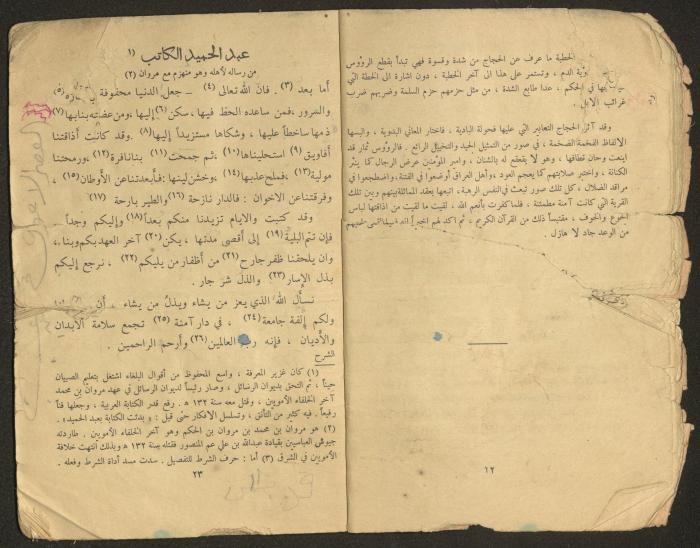 الخطبة ما عرف عن الحجاج من شدة وقسوة فهي تبدأ بقطع الرؤوس
الدم ، وتستمر على هذا الى آخر الخطبة ، دون اشارة الى الخطة التي
في الحكم ، عدا طابع الشدة ، من مثل حزمهم حزم السلمة وضربهم ضرب
غرائب الابل .
وقد آثر الحجاج التعابير التي عليها فحولة البادية ، فاختار المعاني البدوية ، والبسها
الالفاظ الفخمة الضخمة ، في صور من التمثيل الجيد والتخييل الرائع . فالرؤوس ثمار قد
اينعت وحان قطافها ، وهو لا يقعقع له بالشنان ، وامير المؤمنين عرض الرجال كما ينثر
الكنانة ، واختبر صلابتهم كما يعجم العود ، وأهل العراق أوضعوا في الفتنة ، واضطجعوا في
مراقد الضلال ، كل تلك صور تبعث في النفس الرهبة ، اتبعها بعقد المماثلة بينهم وبين تلك
القرية التي كانت آمنة مطمئنة ، فلما كفرت بأنعم الله ، لقيت ما لقيت من اذاقتها لباس
الجوع والخوف ، مقتبساً ذلك من القرآن الكريم ، ثم اكد لهم اخيراً انه
من الوعد جاد لا هازل .
١٢
عبد الحميد الكاتب (١)
من رسالة لأهله وهو منهزم مع مروان (٢)
أما بعد (٣) . فان الله تعالى (٤) — جعل الدنيا محفوفة (٥)
والسرور ، فمن ساعده الحظ فيها ، سكن (٦) إليها ، ومن عضته بنابها (٧)
ذمها ساخطاً عليها ، وشكاها مستزيداً إليها (٨) . وقد كانت أذاقتنا
أفاويق (٩) استحليناها (١٠) ، ثم جمحت (١١) بنا نافرة (١٢) ، ورمحتنا
مولية (١٣) ، فملح عذبها (١٤) ، وخشن لينها : فأبعدتنا عن الأوطان (١٥) ،
وفرقتنا عن الاخوان : فالدار نازحة (١٦) والطير بارحة (١٧)
وقد كتبت والايام تزيدنا منكم بعداً (١٨) وإليكم وجداً
فإن تتم البلية (١٩) إلى أقصى مدتها ، يكن (٢٠) آخر العهد بكم وبنا ،
وان يلحقنا ظفر جارح (٢١) من أظفار من يليكم (٢٢) ، نرجع إليكم
بذل الإسار (٢٣) والذل شر جار .
نسأل الله الذي يعز من يشاء ويذل من يشاء ، أن
ولكم إلفة جامعة (٢٤) ، في دار آمنة (٢٥) تجمع سلامة الأبدان
والأديان ، فإنه رب العالمين (٢٦) وأرحم الراحمين .
الشرح
(١) كان غزير المعرفة ، واسع المحفوظ من أقوال البلغاء اشتغل بتعليم الصبيان
حيناً ، ثم التحق بديوان الرسائل ، وصار رئيساً لديوان الرسائل في عهد مروان بن محمد
آخر الخلفاء الأمويين ، وقتل معه سنة ١٣٢ هـ . رفع قدر الكتابة العربية ، وجعلها فناً
رفيعاً . فيه كثير من التأنق ، وتسلسل الافكار حتى قيل : « بدئت الكتابة بعبد الحميد » .
(٢) هو مروان بن محمد بن مروان بن الحكم وهو آخر الخلفاء الأمويين . طاردته
جيوش العباسيين بقيادة عبدالله بن علي عم المنصور فقتله سنة ١٣٢ هـ وبذلك انتهت خلافة
الأمويين في الشرق (٣) أما : حرف الشرط للتفصيل . سدت مسد أداة الشرط وفعله .
٢٣